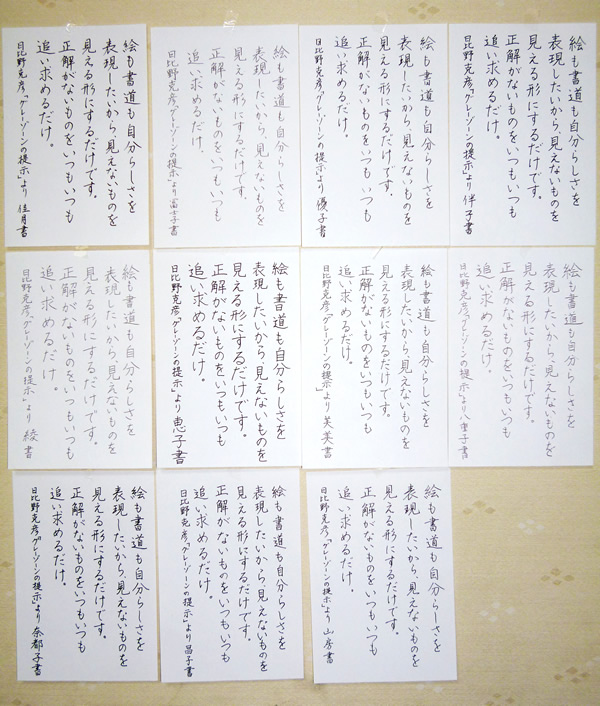 絵も書道も自分らしさを
表現したいから、見えないものを
見える形にするだけです。
正解がないものをいつもいつも
追い求めるだけ。
日比野克彦「グレーゾーンの提示」より 伴子書
絵も書道も自分らしさを
表現したいから、見えないものを
見える形にするだけです。
正解がないものをいつもいつも
追い求めるだけ。
日比野克彦「グレーゾーンの提示」より 優子書
絵も書道も自分らしさを
表現したいから、見えないものを
見える形にするだけです。
正解がないものをいつもいつも
追い求めるだけ。
日比野克彦「グレーゾーンの提示」より 富士書
絵も書道も自分らしさを
表現したいから、見えないものを
見える形にするだけです。
正解がないものをいつもいつも
追い求めるだけ。
日比野克彦「グレーゾーンの提示」より 佳月書
絵も書道も自分らしさを
表現したいから、見えないものを
見える形にするだけです。
正解がないものをいつもいつも
追い求めるだけ。
日比野克彦「グレーゾーンの提示」より 八重子書
絵も書道も自分らしさを
表現したいから、見えないものを
見える形にするだけです。
正解がないものをいつもいつも
追い求めるだけ。
日比野克彦「グレーゾーンの提示」より 芙美書
絵も書道も自分らしさを
表現したいから、見えないものを
見える形にするだけです。
正解がないものをいつもいつも
追い求めるだけ。
日比野克彦「グレーゾーンの提示」より 恵子書
絵も書道も自分らしさを
表現したいから、見えないものを
見える形にするだけです。
正解がないものをいつもいつも
追い求めるだけ。
日比野克彦「グレーゾーンの提示」より 綾書
絵も書道も自分らしさを
表現したいから、見えないものを
見える形にするだけです。
正解がないものをいつもいつも
追い求めるだけ。
日比野克彦「グレーゾーンの提示」より 山房書
絵も書道も自分らしさを
表現したいから、見えないものを
見える形にするだけです。
正解がないものをいつもいつも
追い求めるだけ。
日比野克彦「グレーゾーンの提示」より 昌子書
絵も書道も自分らしさを
表現したいから、見えないものを
見える形にするだけです。
正解がないものをいつもいつも
追い求めるだけ。
日比野克彦「グレーゾーンの提示」より 奈都子書